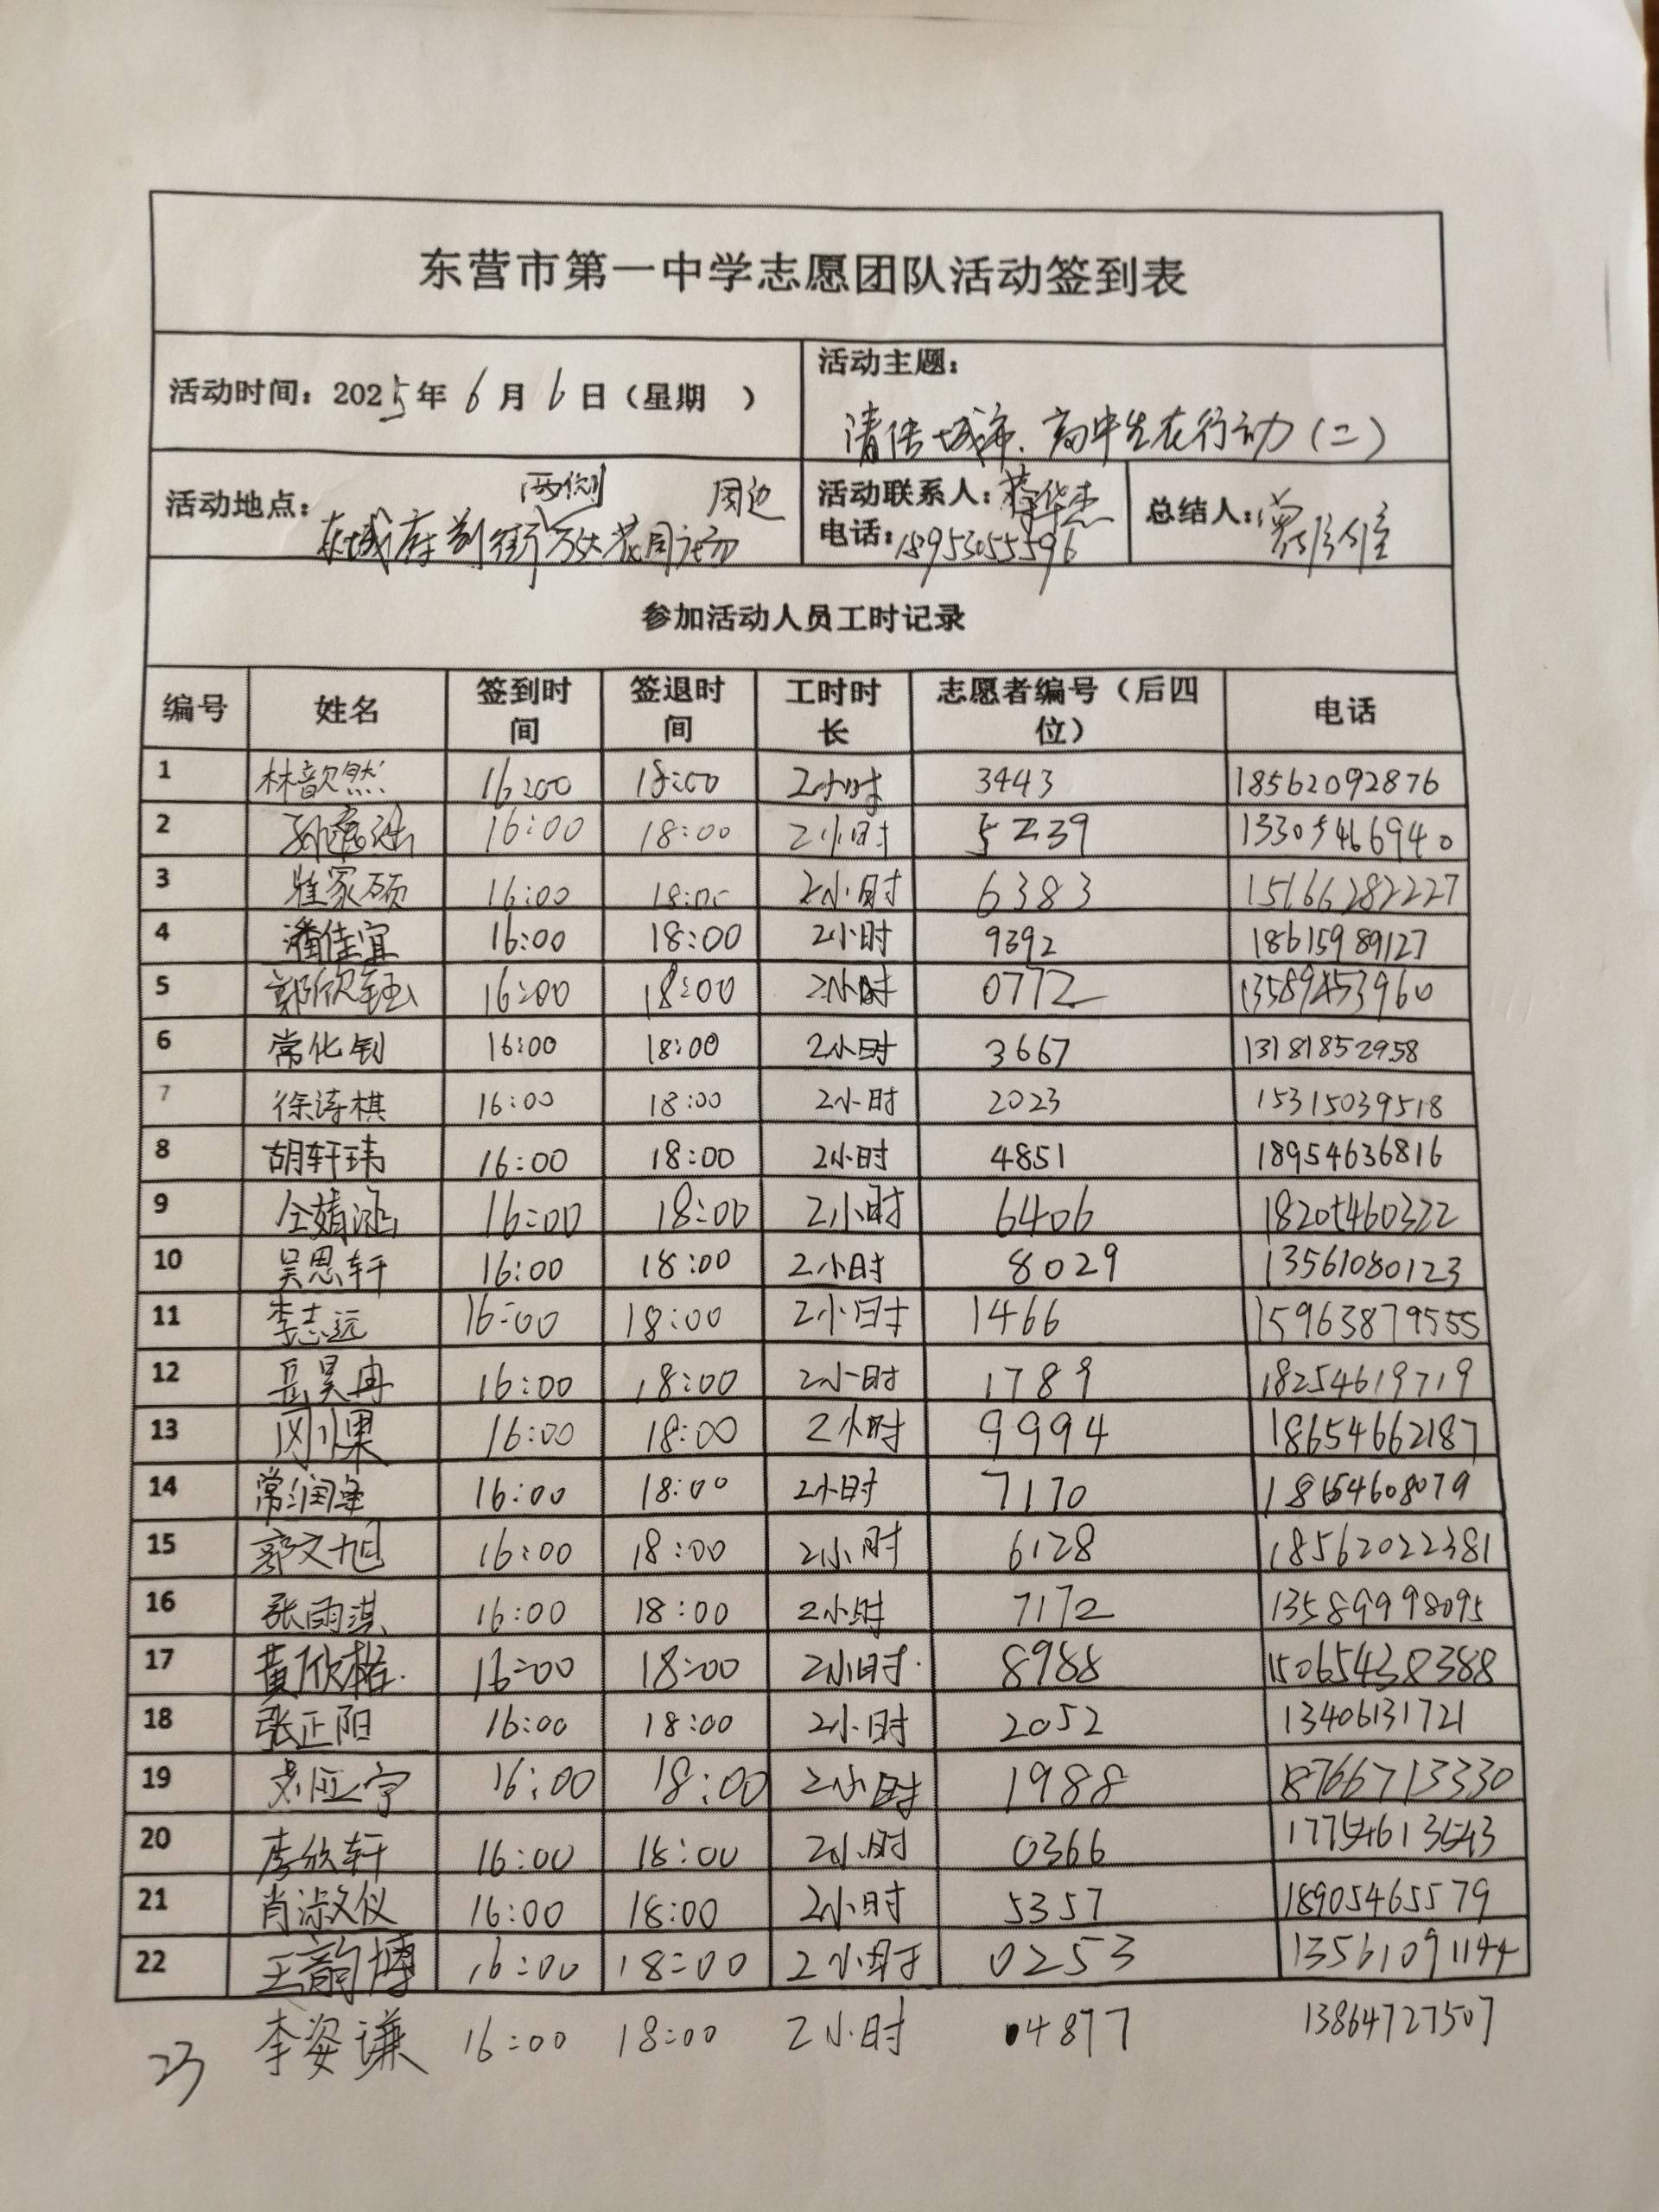 东营市第一中学志愿团队活动签到表
活动时间：2025年6月6日（星期 ）
活动主题：
清洁城市、高中生在行动（二）
活动地点：
两侧 周边
东城府前街 万达花园广场
活动联系人：华杰
电话：18953055596
总结人：
参加活动人员工时记录
编号 姓名 签到时间 签退时间 工时时长 志愿者编号（后四位） 电话
1 林歆然 16:00 18:00 2小时 3443 18562092876
2 16:00 18:00 2小时 5239 13305466940
3 崔家硕 16:00 18:00 2小时 6383 15166282227
4 潘佳宜 16:00 18:00 2小时 9392 18615989127
5 郭欣钰 16:00 18:00 2小时 0772 13589453960
6 常化钊 16:00 18:00 2小时 3667 13181852958
7 徐涛棋 16:00 18:00 2小时 2023 15315039518
8 胡轩玮 16:00 18:00 2小时 4851 18954636816
9 仝婧涵 16:00 18:00 2小时 6406 18205460322
10 吴思轩 16:00 18:00 2小时 8029 13561080123
11 李志远 16:00 18:00 2小时 1466 15963879555
12 岳昊冉 16:00 18:00 2小时 1789 18254619719
13 16:00 18:00 2小时 9994 18654662187
14 常润泽 16:00 18:00 2小时 7170 18654608079
15 郭文旭 16:00 18:00 2小时 6128 18562022381
16 张雨淇 16:00 18:00 2小时 7172 13589998095
17 黄欣格 16:00 18:00 2小时 8988 15065438388
18 张正阳 16:00 18:00 2小时 2052 13406131721
19 刘亚宁 16:00 18:00 2小时 1988 18766713330
20 李欣轩 16:00 18:00 2小时 0366 17754613543
21 肖淑仪 16:00 18:00 2小时 5357 18905465579
22 王韵博 16:00 18:00 2小时 0253 13561091144
23 李姿谦 16:00 18:00 2小时 4877 13864727507